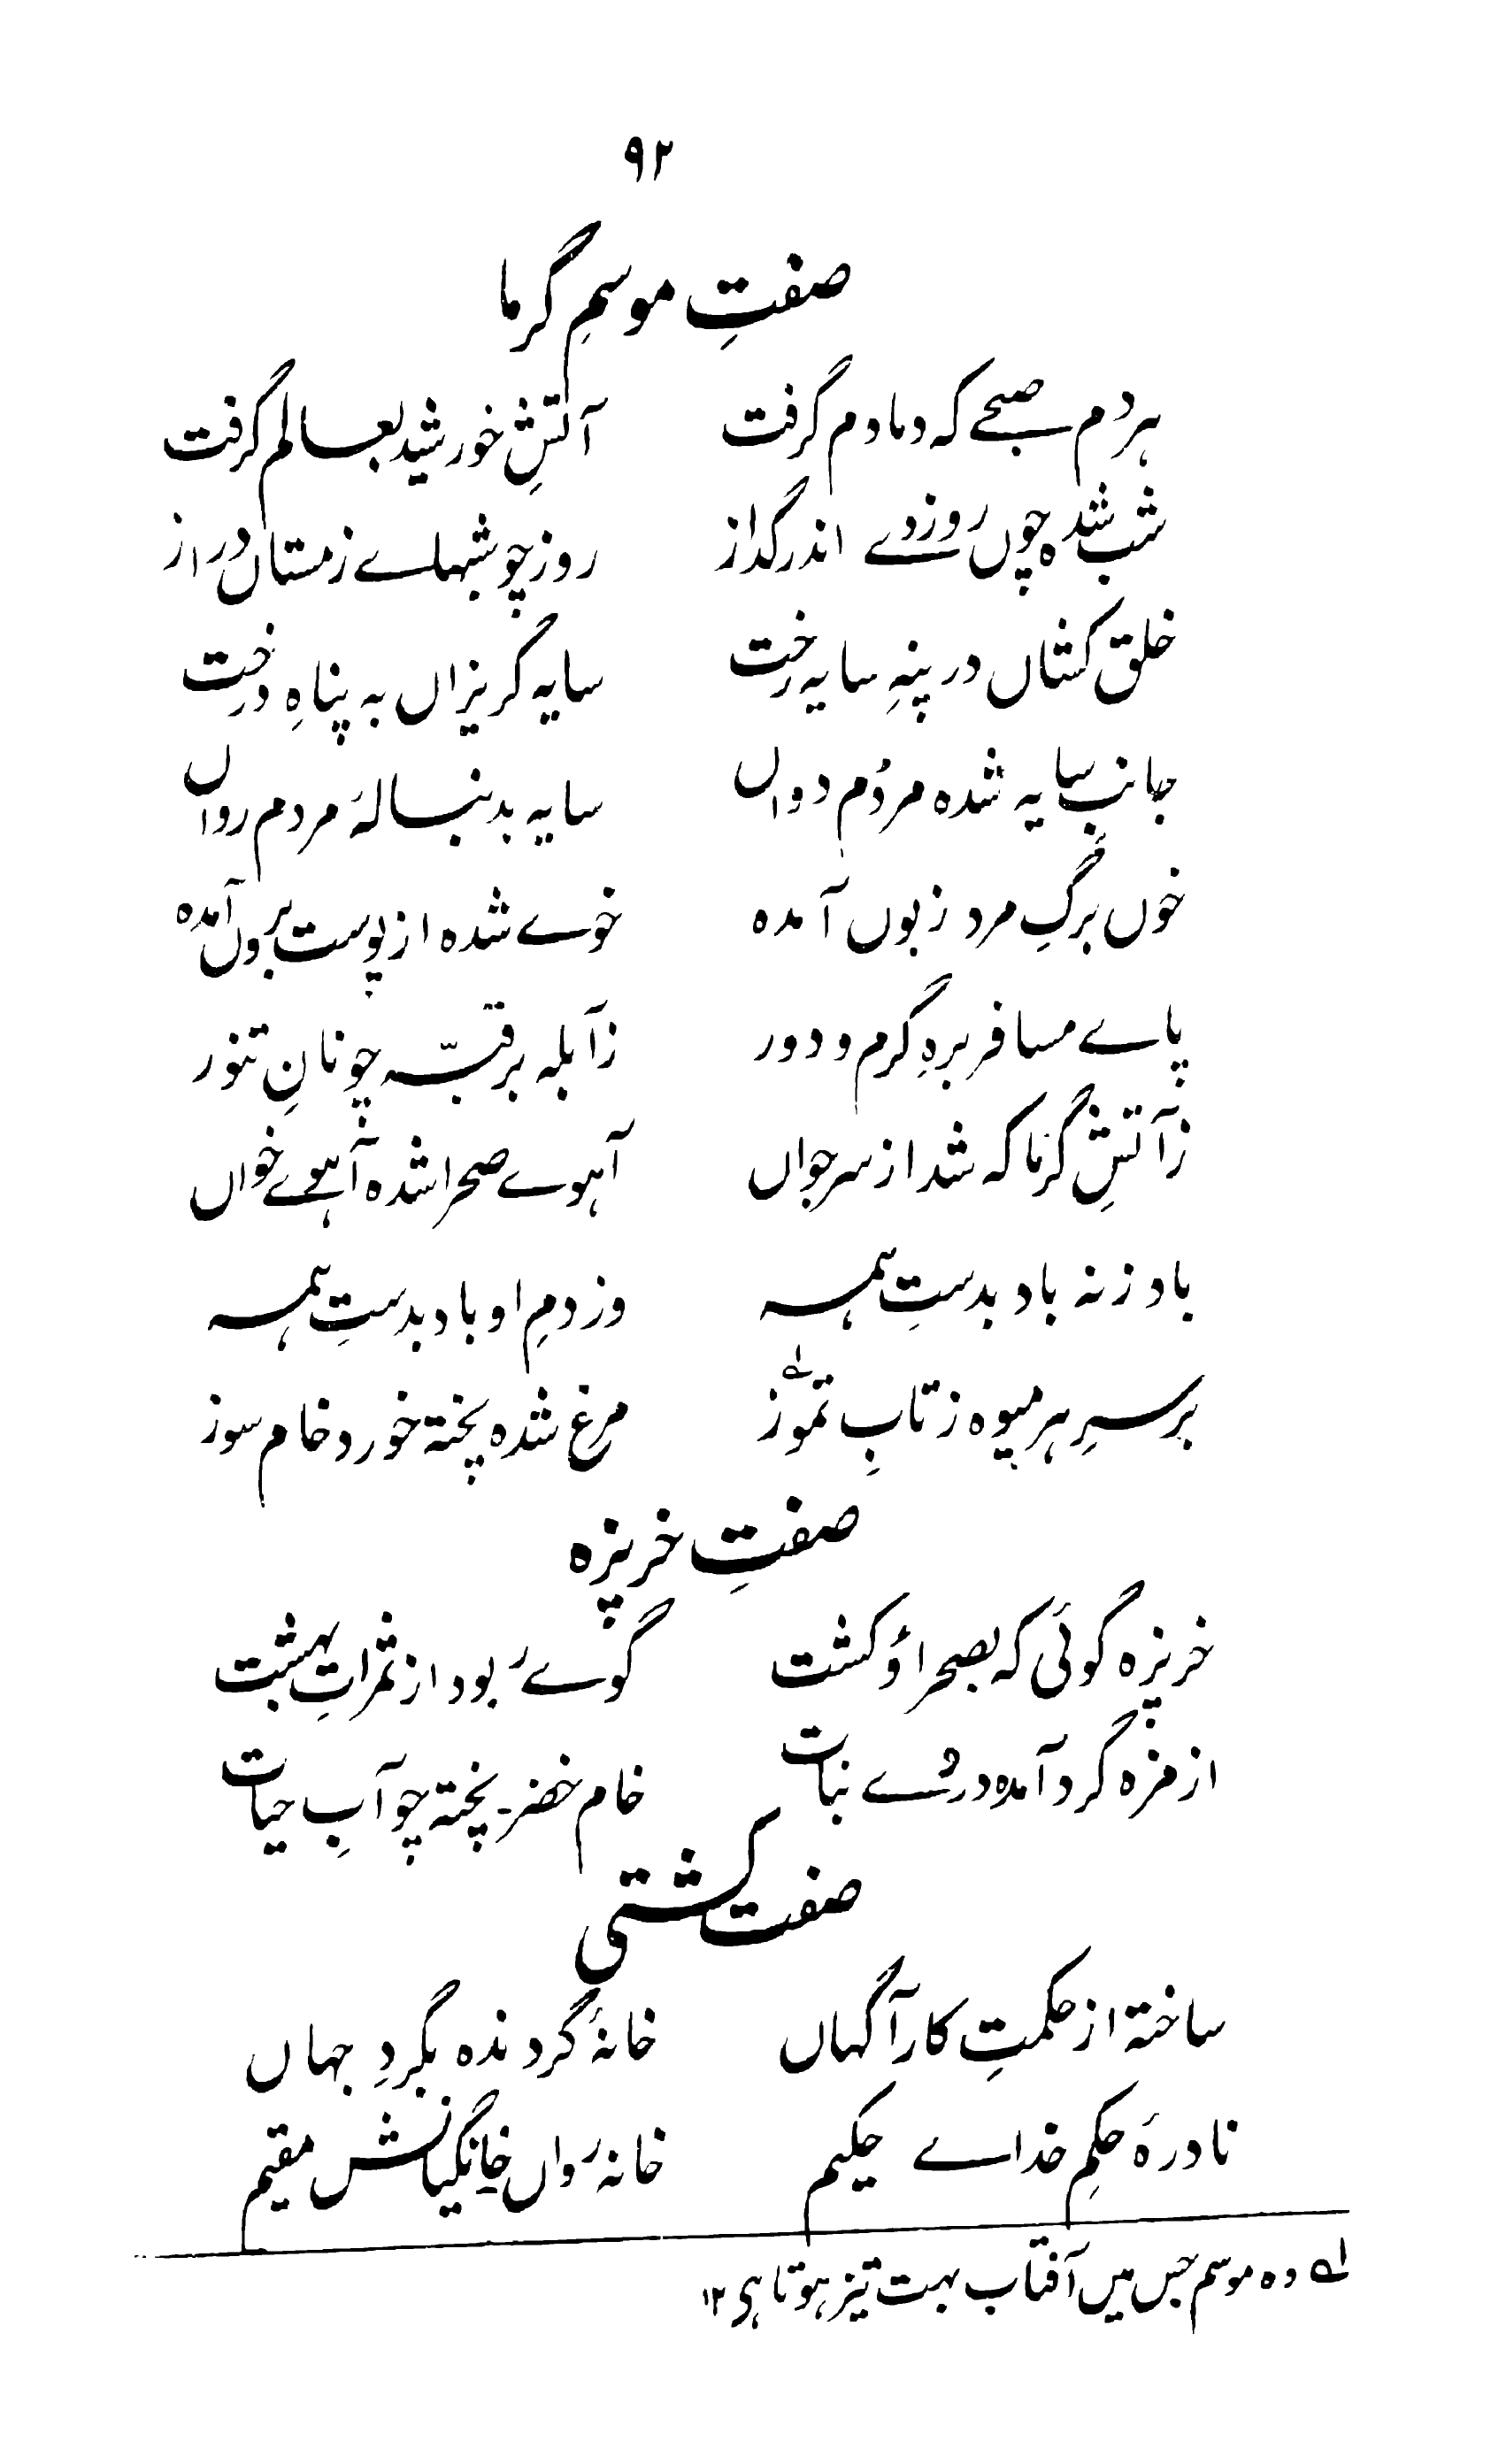 ۹۲
صفتِ موسمِ گرما
ہر دم صبحے کہ دمادم گرفت آتشِ خورشید بعالم گرفت
شب شدہ چوں روز دے اندر گداز روز چو شبہاے زمستاں دراز
خلق کشاں در پنہِ سایہ رخت سایہ گریزاں بہ پناہِ درخت
جانبِ سایہ شدہ مردُم دواں سایہ بدنبالۂ مردم رواں
خوں برگِ مرد زبوں آمدہ خوے شدہ از پوست بروں آمدہ
پاے مسافر برہِ گرم و دور ز آبلہ بر قبّہ چو نانِ تنور
ز آتشِ گرما کہ شد از سر جواں آہوے صحرا شدہ آہوے خواں
باد زنہ باد بدستِ ہمہ وز دمِ او باد بدستِ ہمہ
بر سرِ ہر میوہ ز تابِ تموّز ۱؎ مرغ شدہ پختہ خور و خام سوز
صفتِ خرپزہ
خرپزہ گوئی کہ بصحرا و کشت گوے رُبود از ثمراتِ بہشت
از مزہ گرد آمدہ در وُے نبات خام خضر۔ پختہ چو آبِ حیات
صفت کشتی
ساختہ از حکمتِ کار آگہاں خانۂ گردندہ بگردِ جہاں
نادرہ حکمِ خداے حکیم خانہ رَواں خانگیانش مقیم
۱؎ وہ موسم جس میں آفتاب بہت تیز ہوتا ہی ۱۲